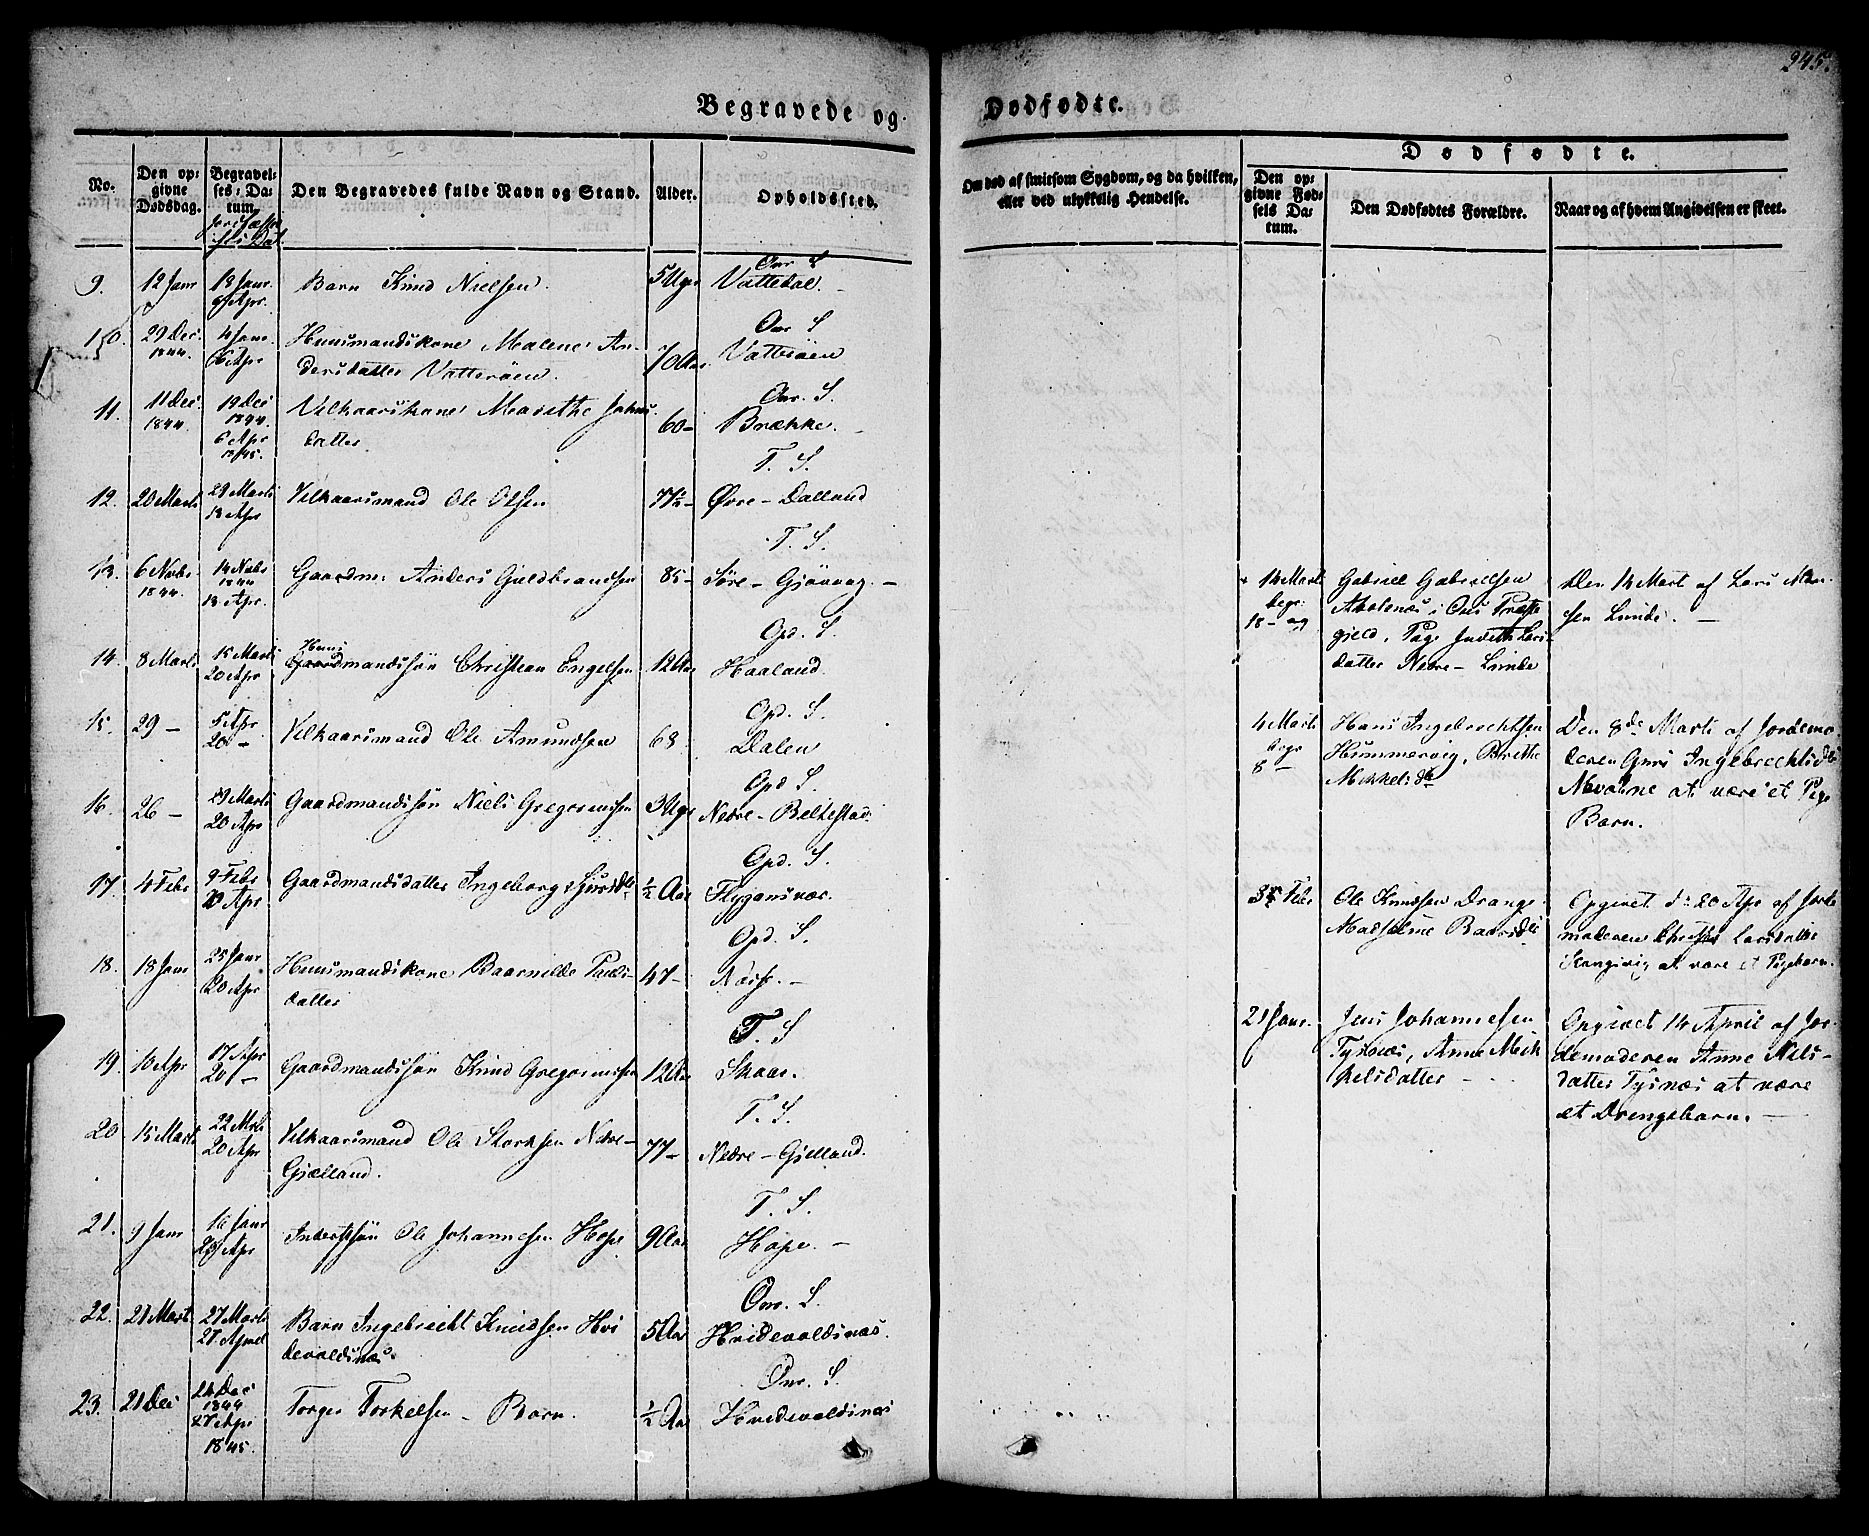 245.
Begravede og
Dødfødte.
No.
Den op-
givne
Dødsdag.
Begravel-
ses-Da-
tum.
Den Begravedes fulde Navn og Stand.
Alder.
Opholdssted.
Om død af smitsom Sygdom, og da hvilken,
eller ved ulykkelig Hendelse.
Dødfødte.
Den op-
givne Fød-
sels Da-
tum.
Den Dødfødtes Forældre.
Naar og af hvem Angivelsen er skeet.
9. 12 Janr 18 Janr 6 Apr Barn Knud Nielsen. 5 Uger Onr S Vattedal. –
10. 29 Dec. 1844. 4 Janr. 6 Apr Huusmandskone Malene An-
dersdatter Vatterøen. 70 Aar. Onr S Vatterøen
11. 11 Dec. 1844. 19 Dec 1844. 6 Apr 1845. Vilkaarskone Marithe Johns-
datter 60 – Onr. S. Brække. –
12. 20 Marts 29 Marts 13 Apr Vilkaarsmand Ole Olsen 77½ – T. S. Øvre – Dalland
13. 6 Novbr 1844. 14 Novbr 1844 13 Apr. Gaardm. Anders Guldbrandsen 85 – T. S. Søre – Gjøvaag. –
14. 8 Marts 15 Marts 20 Apr Huus
Gaardmandssøn Christian Engelsen 12 Aar Opd. S. Haaland.
15. 29 – 5 Apr 20 – Vilkaarsmand Ole Amundsen 68. Opd. S. Dalen
16. 26 – 29 Marts 20 Apr Gaardmandssøn Niels Gregoriussen 3 Uger Opd S. Nedre – Beltestad.
17. 4 Febr 9 Febr 20 Apr Gaardmandsdatter Ingeborg Sjursdtr ½ Aar Opd. S. Flygansvær.
18. 18 Janr 25 Janr 20 Apr Huusmandskone Baarnilde Pauls-
datter 47 – Opd. S. –
19. 10 Apr 17 Apr 20 – Gaardmandssøn Knud Gregoriussen 12 Aar T. S Skaar.
20 15 Marts 22 Marts 20 Apr Vilkaarsmand Ole Storksen Nedre –
Gjælland. 77 – T. S. Nedre – Gjelland.
21. 9 Janr 16 Janr 20 Apr Inderstsøn Ole Johannesen Hope 9 Aar T. S. Hope. –
22. 21 Mart 27 Marts 27 April Barn Ingebrecht Knudsen Hvi
devoldsnæs. 5 Aar Onr. S. Hvidevoldsnæs.
23. 21 Dec 24 Dec 1844 27 Apr 1845. Torger Torkelsen – Barn. ½ Aar Onr. S. Hvidevoldsnæs
14 Marts begr. 18 – Gabriel Gabrielsen
i Ous Præste
gjeld, Pige Judith Lars-
datter Nedre – Lunde
Den 14 Mart af Lars Mon-
sen Lunde. –
4 Marts begr 8 – Hans Ingebrechtsen
Hummervig, Brithe
Mikkelsdtr
Den 8de Marts af Jordemo-
deren Guri Ingebrechtsdtr
at være et Pige
Barn.
Febr Ole Knudsen Drange
Madseline Baarsdtr
Opgivet d. 20 Apr af Jorde
moderen Larsdatter
at være et Pigebarn.
21 Janr. Jens Johannesen
Tysnæs, Anne Mik
kelsdatter –
Opgivet 14 April af Jor-
demoderen Anne Nils-
datter Tysnæs at være
et Drengebarn. –